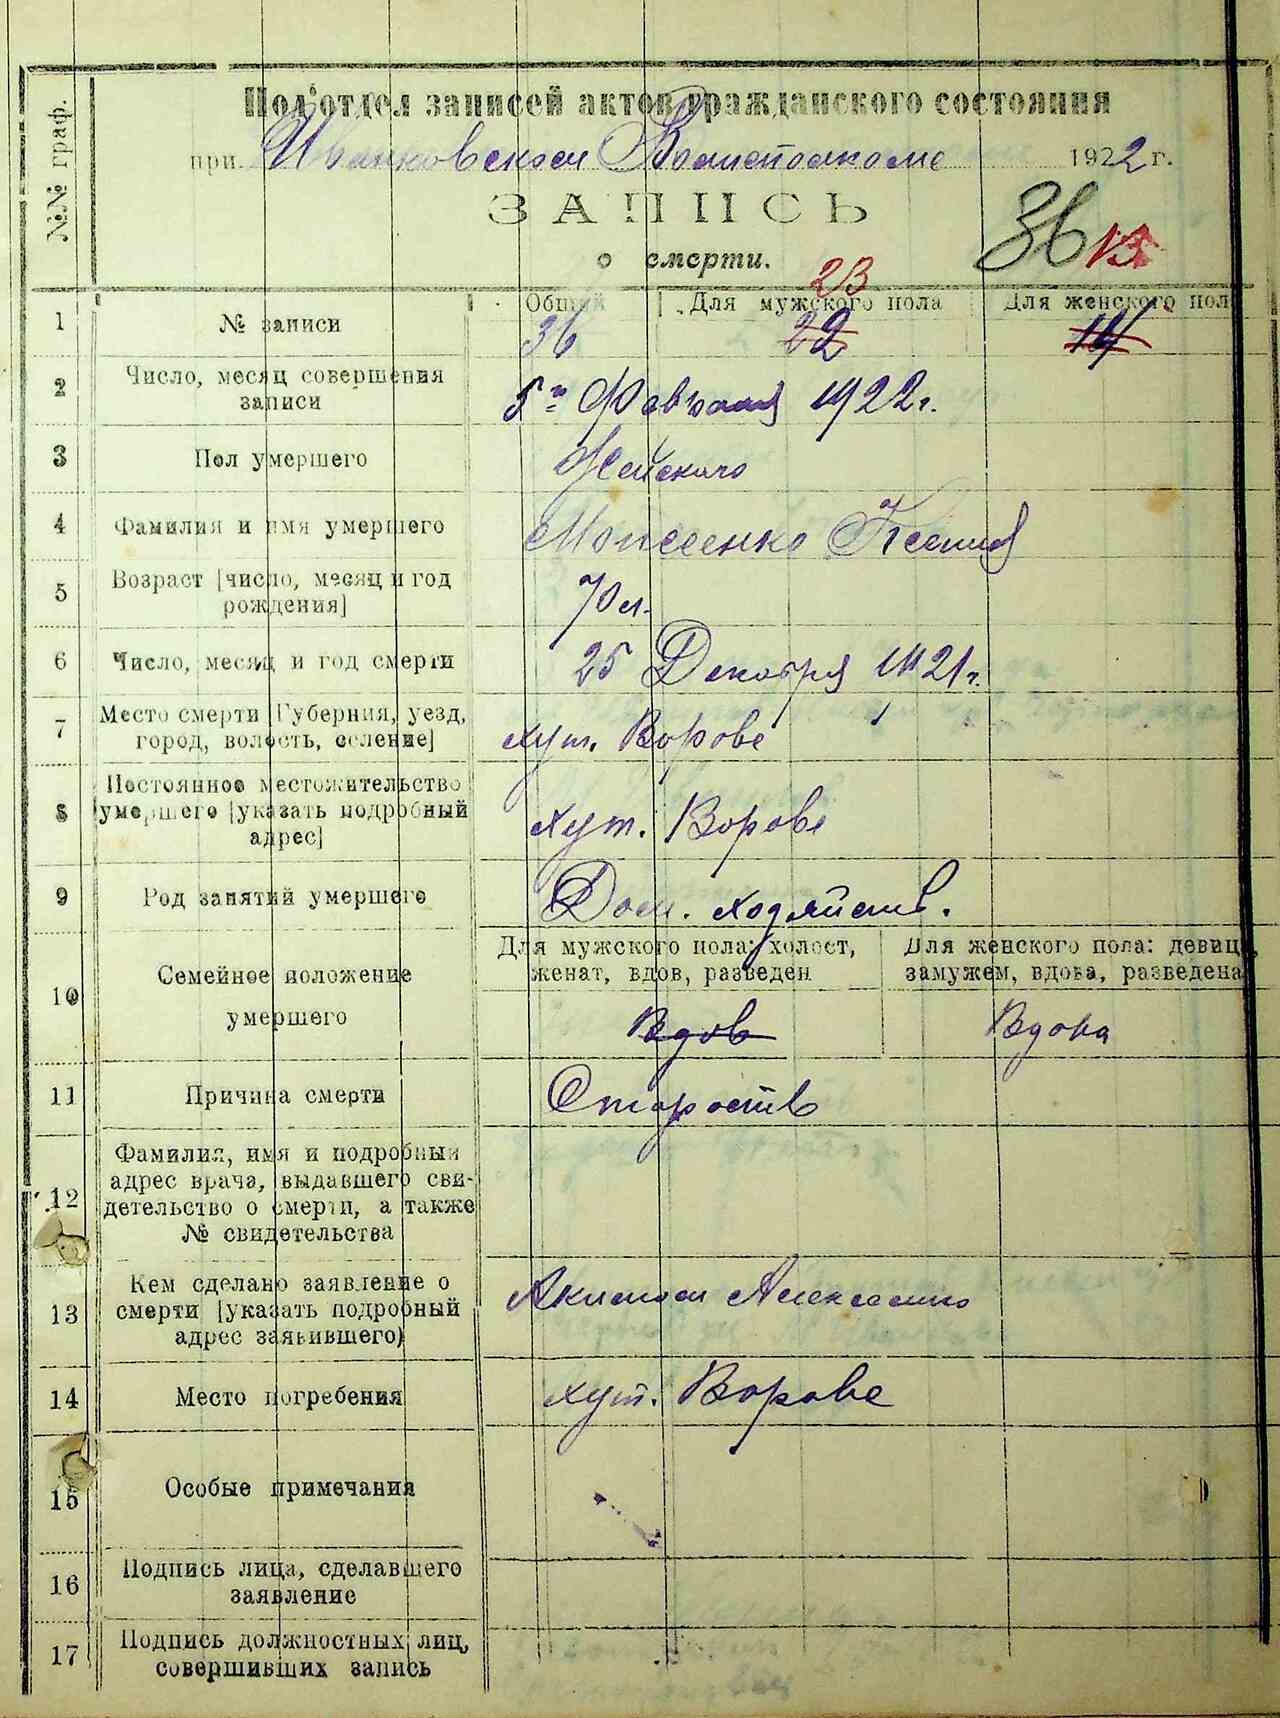 №№ граф.
Под'отдел записей актов гражданского состояния
при Иванковском Волисполкоме 1922 г.
ЗАПИСЬ
о смерти.
36
23
Общий Для мужского пола Для женского пол
1 № записи 36 22 14
2 Число, месяц совершения
записи
5го Февраля 1922 г.
3 Пол умершего Женского
4 Фамилия и имя умершего Моисеенко Ксения
5 Возраст [число, месяц и год
рождения]
70 л.
6 Число, месяц и год смерти 25 Декабря 1921 г.
7 Место смерти [Губерния, уезд,
город, волость, селение]
хут. Ворове
8 Постоянное местожительство
умершего [указать подробный
адрес]
хут. Ворове
9 Род занятий умершего Дом. хозяйств.
10 Семейное положение
умершего
Для мужского пола: холост,
женат, вдов, разведен
Для женского пола: девица,
замужем, вдова, разведена
Вдов Вдова
11 Причина смерти Старость
12 Фамилия, имя и подробный
адрес врача, выдавшего сви-
детельство о смерти, а также
№ свидетельства
13 Кем сделано заявление о
смерти [указать подробный
адрес заявившего)
14 Место погребения хут. Ворове
15 Особые примечания
16 Подпись лица, сделавшего
заявление
17 Подпись должностных лиц,
совершивших запись